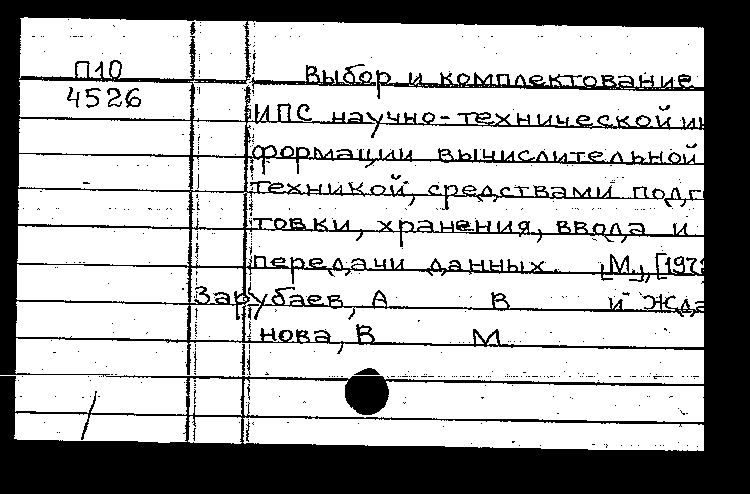 П10
4526
Выбор и комплектование
ИПС научно-технической ин
формации вычислительной
техникой, средствами подго
товки, хранения, ввода и
передачи данных. [М.], [1972
Зарубаев, А В и Жда
нова, В М.